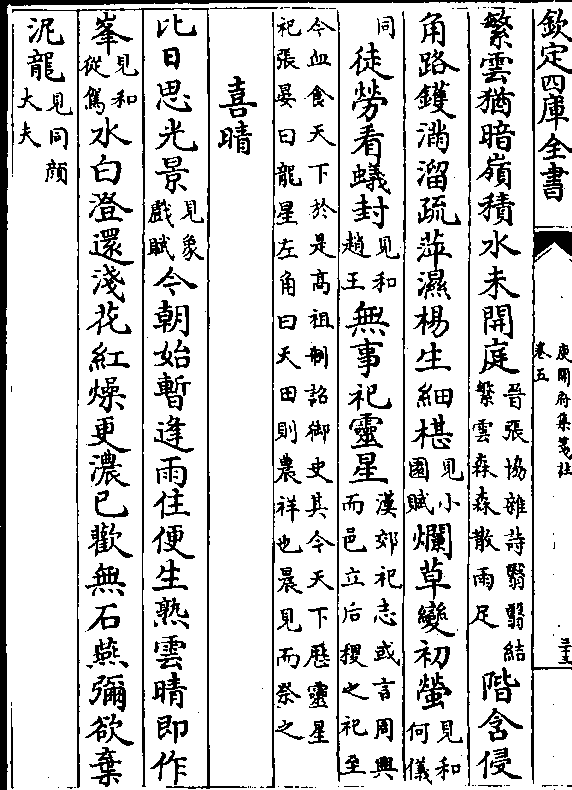 欽定四庫全書
庾開府集箋註
卷五
繁雲猶暗嶺積水未開庭晉張協雜詩翳翳結繁雲森森散雨足階含侵
角路鑊滿溜疏萍濕楊生細椹見小園賦爛草變初螢見和何儀
同徒勞看蟻封見和趙王無事祀靈星漢郊祀志或言周興而邑立后稷之祀至
今血食天下於是髙祖制詔御史其令天下歷靈星
祀張晏曰龍星左角曰天田則農祥也晨見而祭之
喜晴
比日思光景見象戲賦今朝始暫逢雨住便生熱雲晴即作
峯見和從駕水白澄還淺花紅燥更濃已歡無石燕彌欲棄
泥龍見同顔大夫